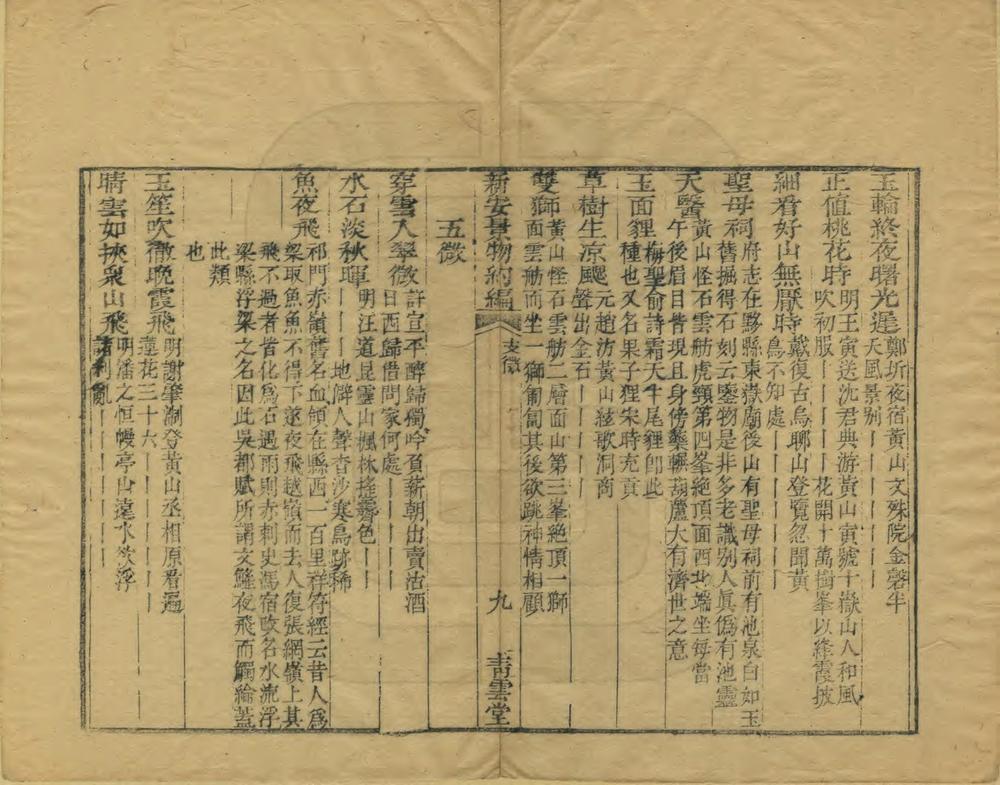 玉輪終夜曙光遲鄭圻夜宿黃山文殊院金磬半
天風景别丨丨丨丨丨丨丨
正值桃花時明王寅送沈君典游黃山寅號十嶽山人和風
吹初服丨丨丨丨丨花開十萬樹峯以絳霞披
細看好山無厭時戴復古烏聊山登覽忽聞黃
鳥不知處丨丨丨丨丨丨丨
聖母祠府志在黟縣東嶽廟後山有聖母祠前有池泉白如玉
舊掘得石刻云鑒物是非多老識别人眞僞有池靈
天醫黃山怪石雲舫虎頸第四峯絶頂面西北端坐每當
午後眉目皆現且身傍藥輾葫蘆大有濟世之意
玉面貍梅聖俞詩霜天牛尾貍即此
種也又名果子狸宋時充貢
草樹生凉颸元趙汸黃山絃歌洞商
聲出金石丨丨丨丨丨
雙獅黃山怪石雲舫二層面山第三峯絶頂一獅
面雲舫而坐一獅匍匐其後欲跳神情相顧
新安景物約編 支微 九 靑雲堂
五微
穿雲入翠微許宣平醉歸獨吟負薪朝出賣沽酒
日西歸借問家何處丨丨丨丨丨
水石淡秋暉明汪道昆靈山楓林搖霽色丨丨
丨丨丨地僻人聲杳沙寒鳥跡稀
魚夜飛祁門赤嶺舊名血嶺在縣西一百里祥符經云昔人爲
梁取魚魚不得下遂夜飛越嶺而去人復張網嶺上其
飛不過者皆化爲石遇雨則赤刺史馮宿改名水流浮
梁縣浮梁之名因此吳都賦所謂文鰩夜飛而觸綸蓋
此類
也
玉笙吹徹晚霞飛明謝肇淛登黃山丞相原看遍
蓮花三十六丨丨丨丨丨丨丨
晴雲如挾衆山飛明潘之恒幔亭山遠水欲浮
諸刹亂丨丨丨丨丨丨丨